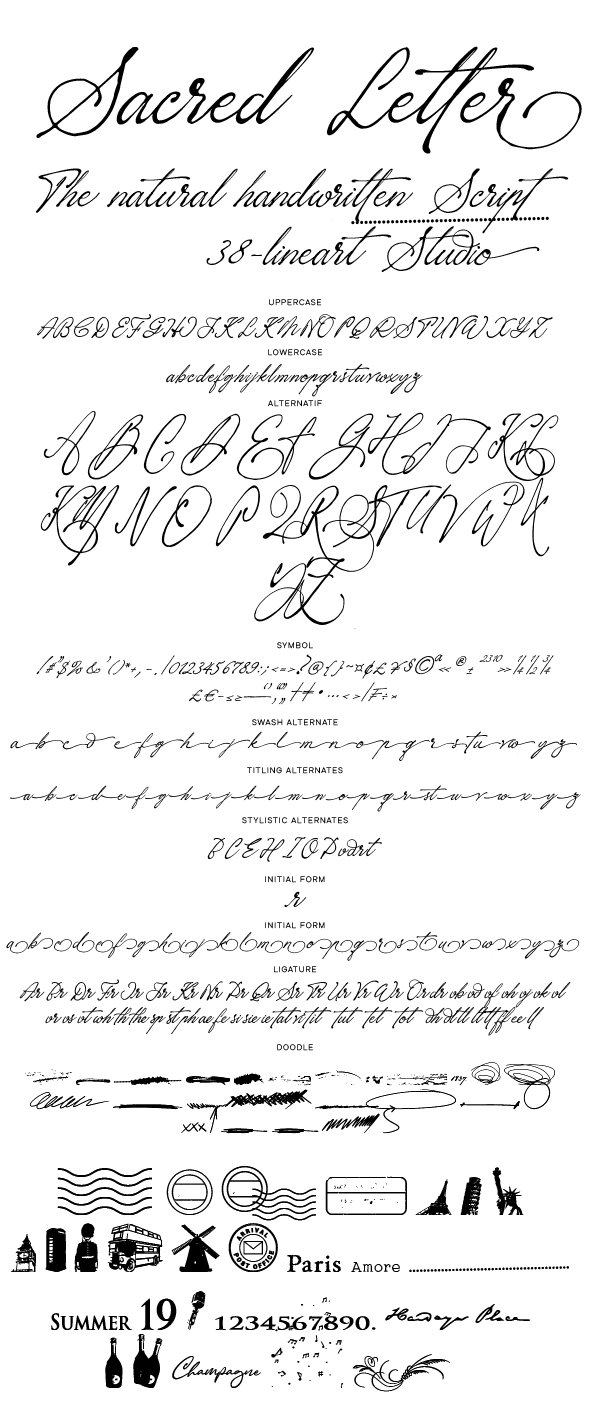 Sacred Letter
The natural handwritten Script
38-lineart Studio
UPPERCASE
ABCDEFGHIJKLKMNOPQRSTUVWXYZ
LOWERCASE
abcdefghijklmnopqrstuvwxyz
ALTERNATIF
A B C D E F G H I J K L
K M N O P Q R S T U V W X
Y Z
SYMBOL
!#"$%&'()*+,-./0123456789:;<=>?@{}~¤¢£¥§©ª«®±²³¹⁰»¼½¾
£€–≤≥—
SWASH ALTERNATE
a b c d e f g h i j k l m n o p q r s t u v w y z
TITLING ALTERNATES
a b c d e f g h i j k l m n o p q r s t u v w x y z
STYLISTIC ALTERNATES
B C E H I O P v d r t
INITIAL FORM
r
INITIAL FORM
a b c d e f g h i j k l m n o p q r s t u v w x y z
LIGATURE
Ar Br Dr Fr Ir Jr Kr Nr Pr Qr Sr Tr Ur Vr Wr Or dr ob od of oh oj ok ol
or os ot wh th the sp st ph ae fe si sie ie tat ri tit tut tet tot
DOODLE
1837
xxx
ARRIVAL
POST OFFICE
Paris Amore
SUMMER 19 1234567890. Place
Champagne